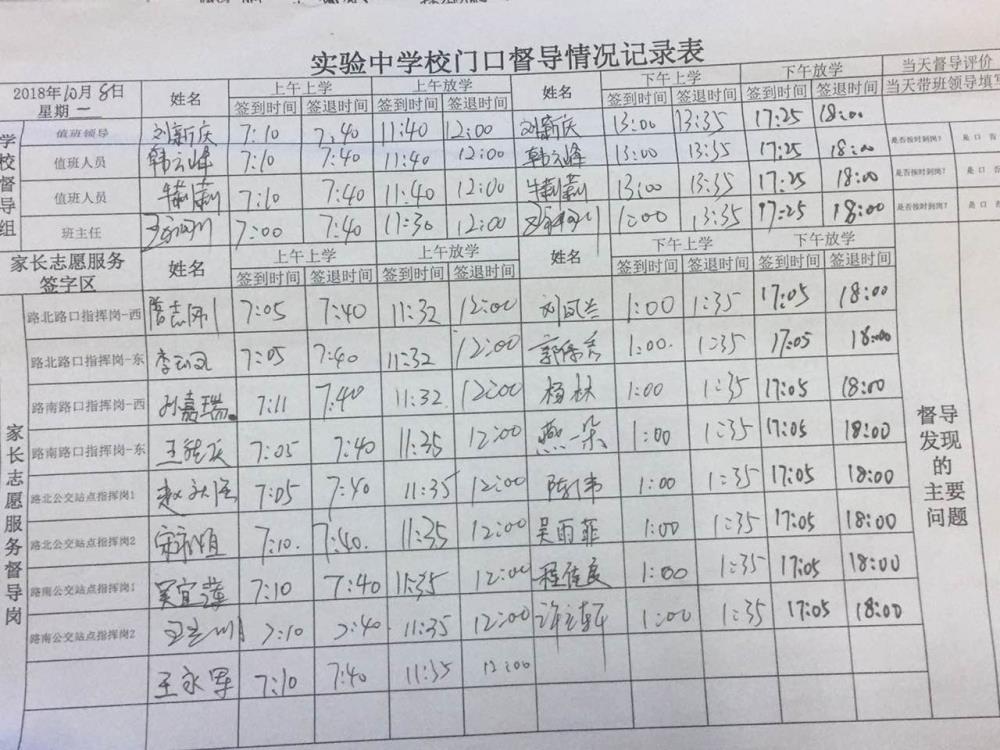 实验中学校门口督导情况记录表
2018年10月8日 星期一 姓名 上午上学 上午放学 姓名 下午上学 下午放学 当天督导评价
签到时间 签退时间 签到时间 签退时间 签到时间 签退时间 签到时间 签退时间 当天带班领导填写
学校督导组
值班领导 刘新庆 7:10 7:40 11:40 12:00 刘新庆 13:00 13:35 17:25 18:00 是否按时到岗? 是 口 否
值班人员 韩云峰 7:10 7:40 11:40 12:00 韩云峰 13:00 13:35 17:25 18:00 是否按时到岗? 是 口 否
值班人员 牛莉莉 7:10 7:40 11:40 12:00 牛莉莉 13:00 13:35 17:25 18:00 是否按时到岗? 是 口 否
班主任 7:00 7:40 11:30 12:00 1:00 13:35 17:25 18:00
家长志愿服务签字区 姓名 上午上学 上午放学 姓名 下午上学 下午放学
签到时间 签退时间 签到时间 签退时间 签到时间 签退时间 签到时间 签退时间
家长志愿服务督导岗
路北路口指挥岗-西 7:05 7:40 11:32 12:00 刘凤兰 1:00 1:35 17:05 18:00
路北路口指挥岗-东 7:05 7:40 11:32 12:00 1:00 1:35 17:05 18:00
路南路口指挥岗-西 孙嘉瑞 7:11 7:40 11:32 12:00 杨林 1:00 1:35 17:05 18:00
路南路口指挥岗-东 7:05 7:40 11:35 12:00 燕一朵 1:00 1:35 17:05 18:00
路北公交站点指挥岗1 7:05 7:40 11:35 12:00 陈伟 1:00 1:35 17:05 18:00
路北公交站点指挥岗2 7:10 7:40 11:35 12:00 吴雨菲 1:00 1:35 17:05 18:00
路南公交站点指挥岗1 吴宜謙 7:10 7:40 11:35 12:00 程佳良 1:00 1:35 17:05 18:00
路南公交站点指挥岗2 7:10 7:40 11:35 12:00 1:00 1:35 17:05 18:00
王永军 7:10 7:40 11:35 12:00
督导发现的主要问题